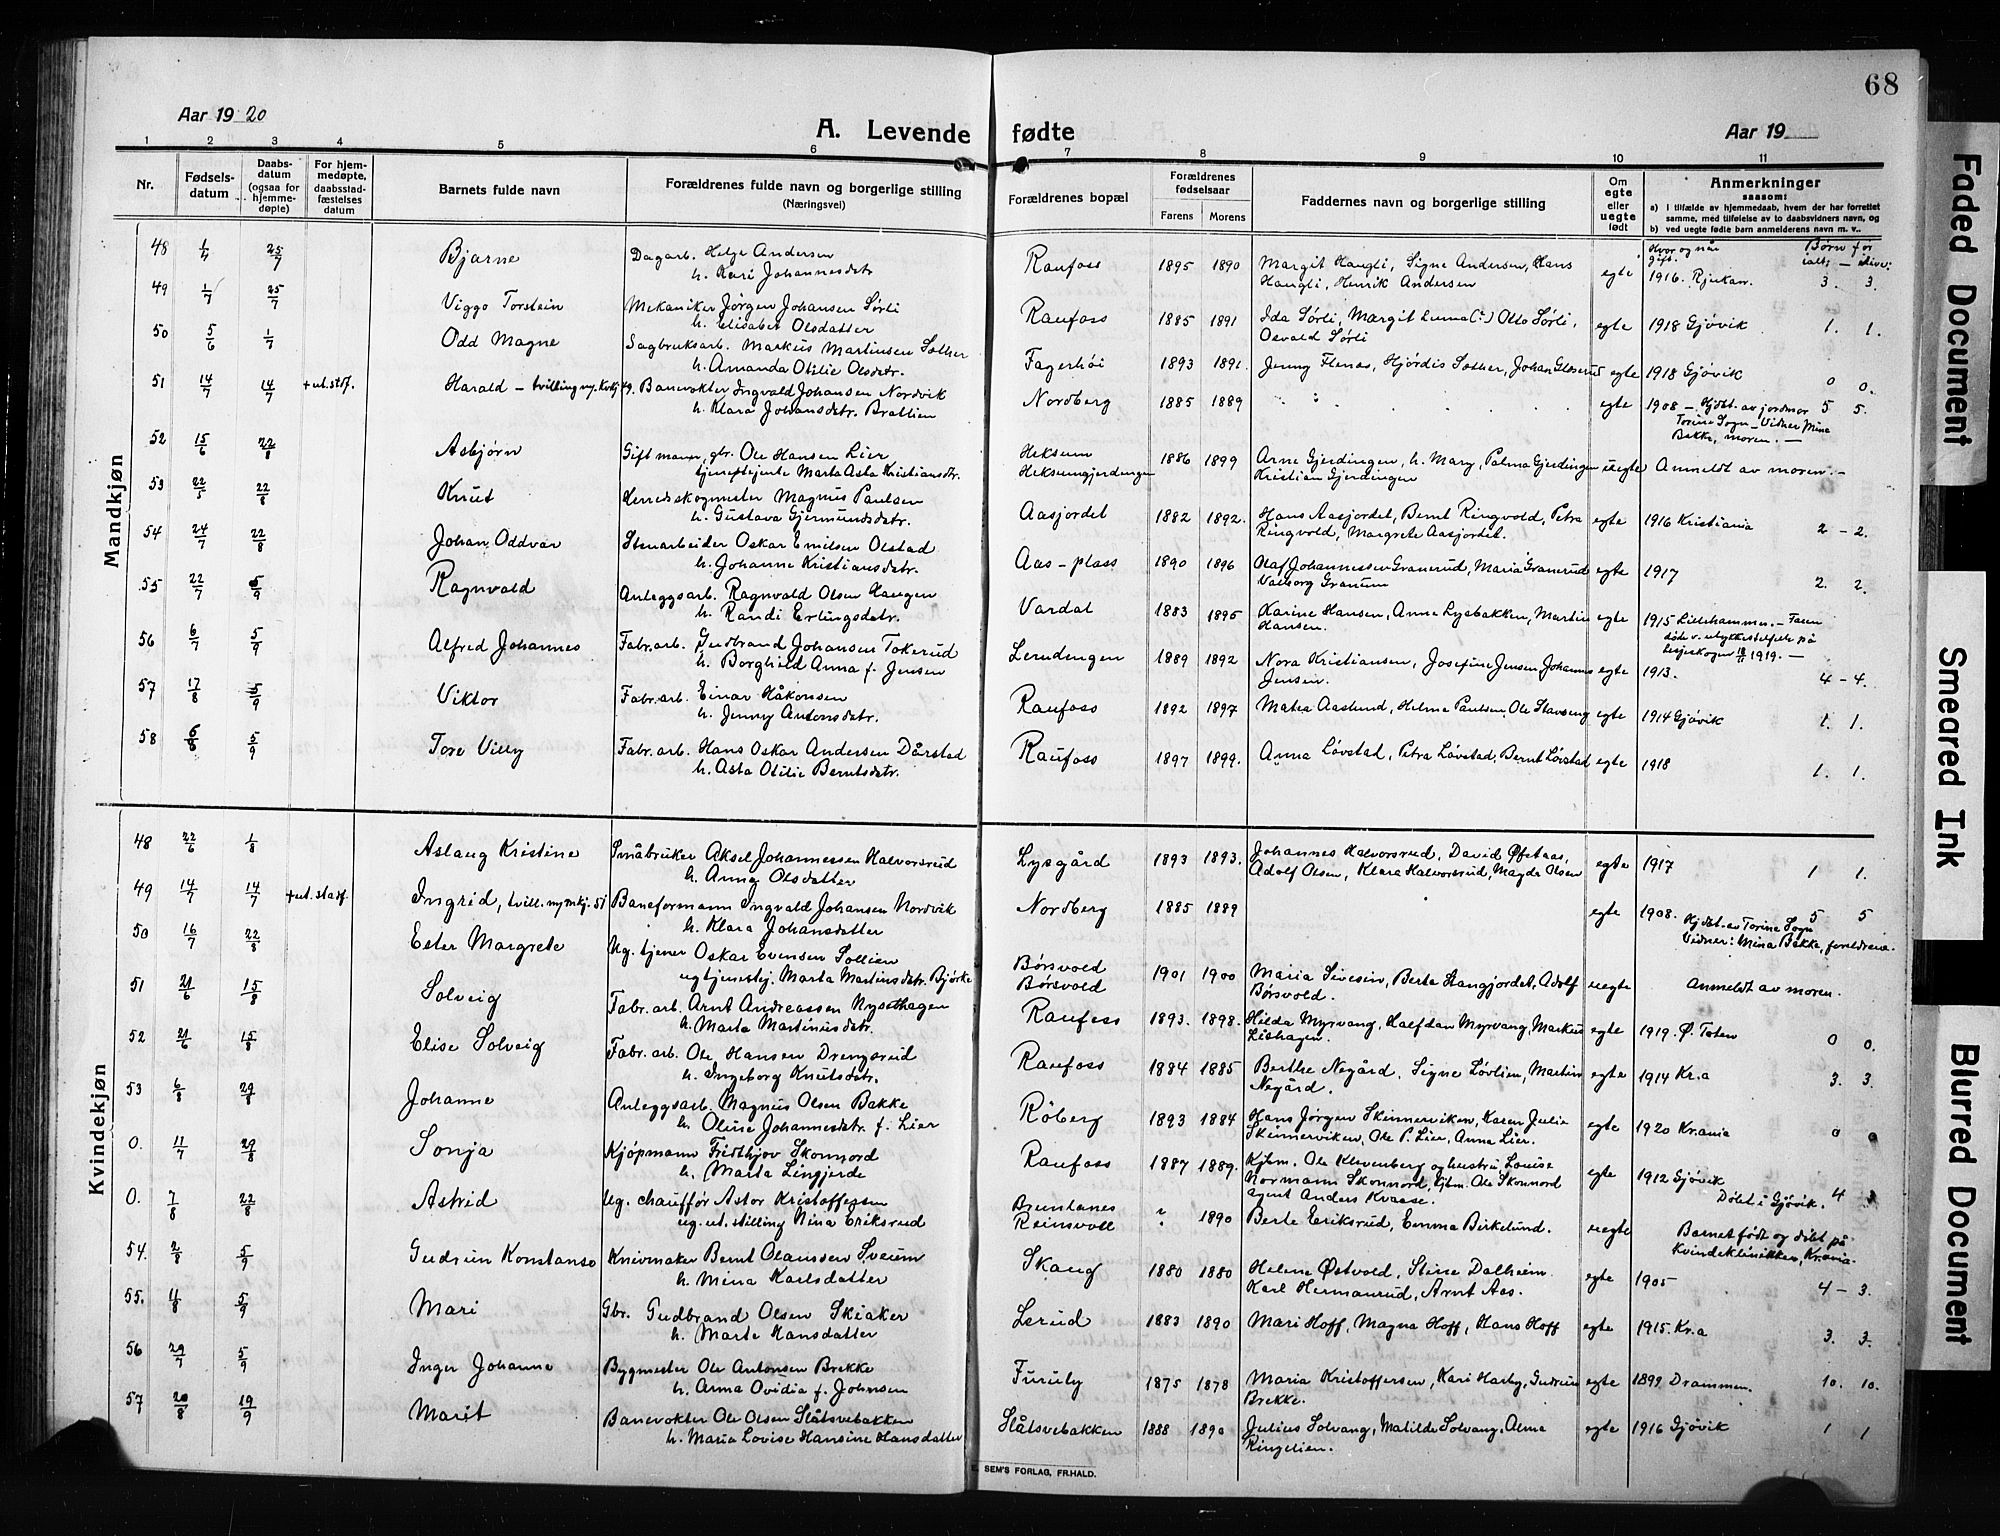 68
Aar 19 20
A. Levende fødte
Aar 19
1 2 3 4 5 6 7 8 9 10 11
Nr.
Fødsels-
datum
Daabs-
datum
(ogsaa for
hjemme-
døpte)
For hjem-
medøpte,
daabsstad-
fæstelses
datum
Barnets fulde navn
Forældrenes fulde navn og borgerlige stilling
(Næringsvei)
Forældrenes bopæl
Forældrenes
fødselsaar
Farens Morens
Faddernes navn og borgerlige stilling
Om
egte
eller
uegte
født
Anmerkninger
saasom:
a) i tilfælde av hjemmedaab, hvem der har forrettet
samme, med tilføielse av to daabsvidners navn, og
b) ved uegte fødte barn anmelderens navn m. v..
Mandkjøn
48 1/7 25/7 Bjarne Dagarb. Helge Andersen Raufoss 1895 1890 Margit Haugli, Signe Andersen, Hans egte Hvor og når gift. Børn før ialt – i live:
h. Kari Johannesdatr Haugli, Henrik Andersen 1916. Rjukan. 3. 3.
49 1/7 25/7 Viggo Torstein Mekaniker Jørgen Johansen Sørli Raufoss 1885 1891 Ida Sørli, Margit Otto Sørli, egte 1918 Gjøvik 1. 1.
h. Elisabet Olsdatter Osvald Sørli
50 5/6 1/7 Odd Magne Sagbruksarb. Markus Martinsen Sæther Fagerhøi 1893 1891. Jenny Flenas, Hjørdis Sæther, Johan egte 1918 Gjøvik 0 0.
h. Amanda Otilie Olsdatr.
51 14/7 14/7 +ut. stf. Harald – tvilling m. kvkj 49. Banevokter Ingvald Johansen Nordvik Nordberg 1885 1889 egte 1908 – Hjdbt. av jordmor 5 5.
h. Klara Johansdatr. Brattlien Torine Sogn – Vidner Mina
Bakke, moren. –
52 15/6 22/8 Asbjørn Gift mann, gbr. Ole Hansen Lier Heksum 1886 1899 Arne Gjerdingen, h. Mary, Palma Gjerdingen uegte Anmeldt av moren. –
tjenestejente Marta Asta Kristiansdtr. Heksumgjerdingen Kristian Gjerdingen
53 22/5 22/8 Knut Herredsskogmester Magnus Paulsen Aasjordet 1882 1892. Hans Aasjordet, Bernt Ringvold, Petra egte 1916 Kristiania 2 – 2.
h. Gustava Gjermundsdatr. Ringvold, Margrete Aasjordet.
54 24/7 22/8 Johan Oddvar Stenarbeider Oskar Emilsen Olstad Aas – plass 1890 1896 Olaf Johannessen Granerud, Maria Granerud egte 1917 2. 2.
h. Johanne Kristiansdatr. Valborg Granum
55 22/7 5/9 Ragnvald Anleggsarb. Ragnvald Olsen Haugen Vardal 1883 1895 Karine Hansen, Anne Lysbakken, Martin egte 1915 Lillehammer. – Faren
h. Randi Erlingsdatr. Hansen. døde v. ulykkestilfelle på
Lesjeskogen 1919. –
56 6/7 5/9 Alfred Johannes Fabr. arb. Gudbrand Johansen Tokerud Lerudengen 1889 1892 Nora Kristiansen, Josefine Jensen, Johannes egte 1913. 4 – 4.
h. Borghild Anna f. Jensen Jensen.
57 17/8 5/9 Viktor Fabr. arb. Einar Håkonsen Raufoss 1892 1897 Matea Aaslund, Helma Paulsen, Ole Stavseng egte 1914 Gjøvik 1. 1.
h. Jenny Antonsdatr.
58 6/8 5/9 Tore Villy Fabr. arb. Hans Oskar Andersen Dårstad Raufoss 1897 1899. Anna Løvstad, Petra Løvstad, Bernt Løvstad egte 1918 1. 1.
h. Asta Otilie Berntsdatr.
Kvindekjøn
48 22/6 1/8 Aslaug Kristine Småbruker Aksel Johannessen Halvorsrud Lysgård 1893 1893. Johannes Halvorsrud, David Øfstaas, egte 1917 1 1.
h. Anna Olsdatter Adolf Olsen, Klara Halvorsrud, Magda Olsen
49 14/7 14/7 +ut. stadf. Ingrid, tvill. m. mkj. 51 Baneformann Ingvald Johansen Nordvik Nordberg 1885 1889 egte 1908. Hjdbt. av Torine Sogn 5 5
h. Klara Johansdatter Vidner: Mina Bakke, foreldrene.
50 16/7 22/8 Ester Margrete Ug. tjener Oskar Evensen Sollien Børsvold 1901 1900 Maria Sivesin, Berte Hangjordet, Adolf uegte Anmeldt av moren.
ug tjenestej. Marta Martinsdatr. Bjørke Børsvold Børsvold.
51 21/6 15/8 Solveig Fabr. arb. Arnt Andreassen Nysethagen Raufoss 1893. 1898. Hilda Myrvang, Halfdan Myrvang, Markus egte 1919. Ø. Toten 0 0.
h. Marta Martinusdatr. Lishagen.
52 21/6 15/8 Elise Solveig Fabr. arb. Ole Hansen Drengsrud Raufoss 1884 1885 Berthe Negård, Signe Løvlien, Martin egte 1914 Kr.a 3. 3.
h. Ingeborg Knutsdatr. Negård.
53 6/8 29/8 Johanne Anleggsarb. Magnus Olsen Bakke Røberg 1893 1884 Hans Jørgen Skinnerviken, Karen Julie egte 1920 Kr.ania 0 0
h. Oline Johannesdatr. f. Lier Skinnerviken, Ole P. Lier, Anna Lier.
0. 11/7 29/8 Sonja Kjøpmann Fridthjov Skonnord Raufoss 1887 1889. Kjbm. Ole Klevenberg og hustru, Louise egte 1912 Gjøvik 4 3
h. Marta Lingjerde Normann Skonnord, kjbm. Ole Skonnord Døbt i Gjøvik.
agent Anders Kvaase.
0. 7/8 22/8 Astrid Ug. chauffør Astor Kristoffersen ? 1890 Berte Eriksrud, Emma Birkelund. uegte Barnet født og døbt på
ug. ut. stilling Nina Eriksrud Reinsvoll Kvindeklinikken, Kr.ania.
54. 2/8 5/9 Gudrun Konstanse Knivmaker Bernt Olaussen Sveum Skaug 1880 1880 Helene Østvold, Stine Dalheim egte 1905 4 – 3.
h. Mina Karlsdatter Karl Hermanrud, Arnt Aas.
55. 11/8 5/9 Mari Gbr. Gudbrand Olsen Skiaker Lerud 1883 1890 Mari Hoff, Magna Hoff, Hans Hoff egte 1915. Kr.a 3. 3.
h. Marte Hansdatter
56 29/7 5/9 Inger Johanne Bygmester Ole Antonsen Brekke Furuly 1875 1878 Maria Kristoffersen, Kari Harby, Gudrun egte 1899 Drammen. 10. 10.
h. Anna Ovidia f. Johnsen Brekke.
57 20/8 19/9 Marit Banevokter Ole Olsen Slåtsvebakken Slåtsvebakken 1888 1890 Julius Solvang, Matilde Solvang, Alma egte 1916 Gjøvik 1 1
h. Maria Lovise Hansine Hansdatter Ringelien.
E. SEM'S FORLAG, FR.HALD.
Faded Document
Smeared Ink
Blurred Document